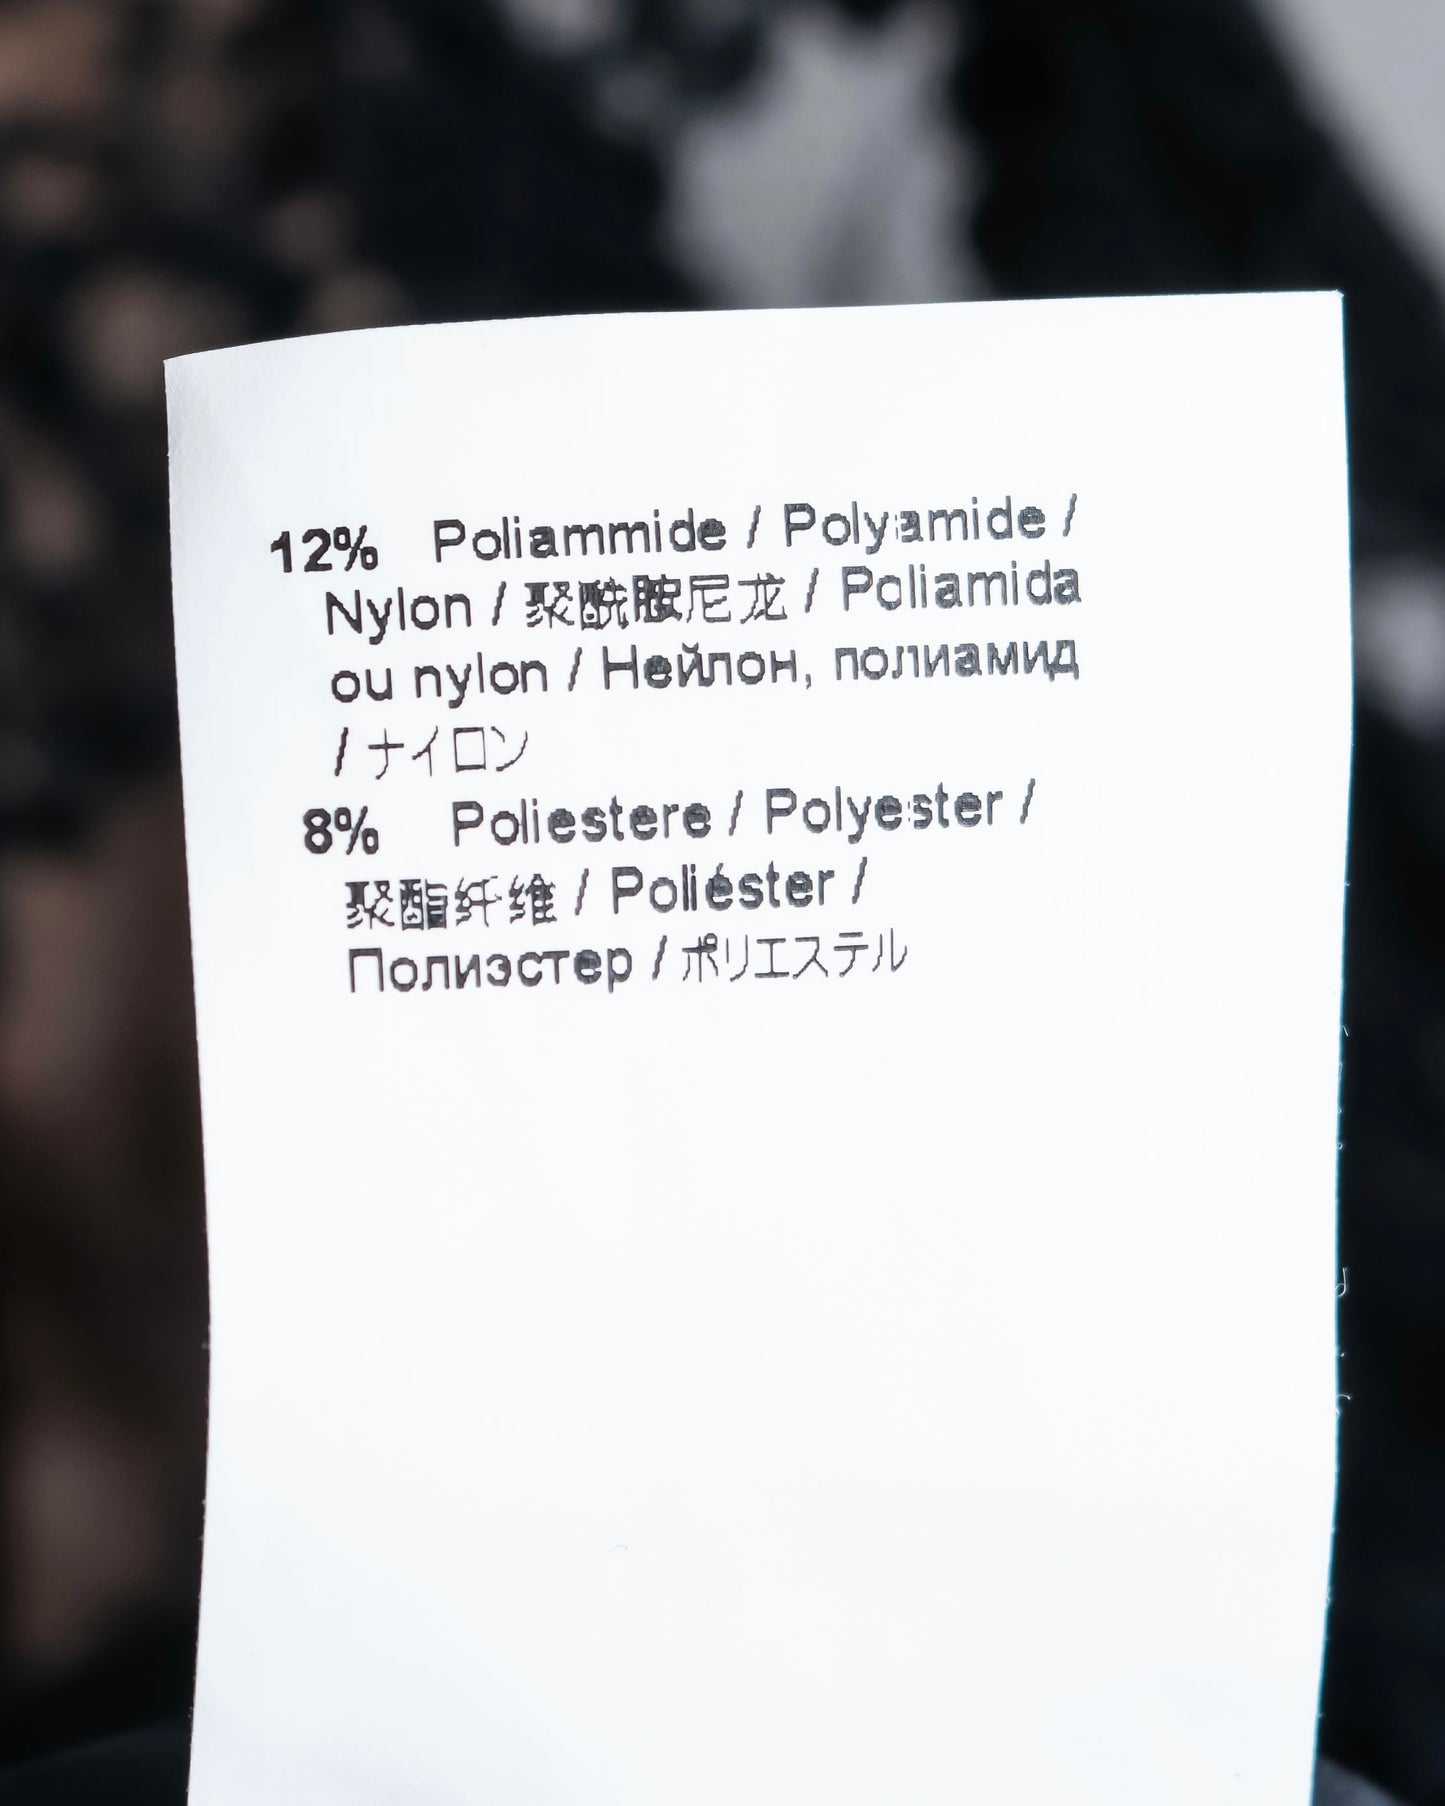 12% Poliammide / Polyamide /
Nylon / 聚酰胺尼龙 / Poliamida
ou nylon / Нейлон, полиамид
/ ナイロン
8% Poliestere / Polyester /
聚酯纤维 / Poliéster /
Полиэстер / ポリエステル